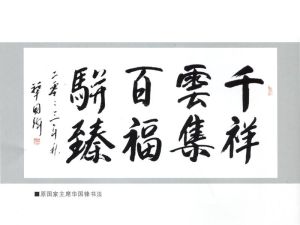 千祥
雲集
百福
駢臻
二零〇二年秋
華國鋒
■原国家主席华国锋书法